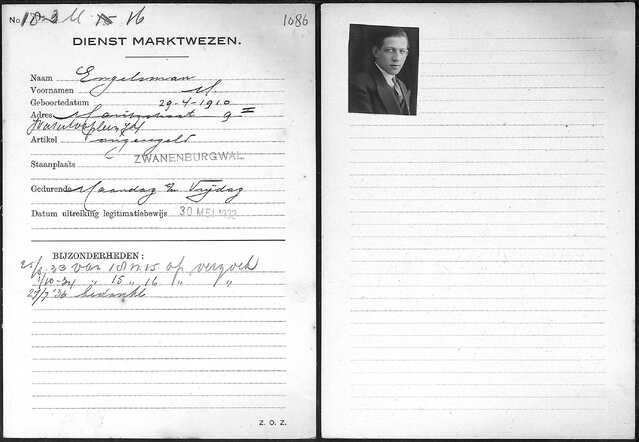 No. 18 M 15 16 1086
DIENST MARKTWEZEN.
Naam Engelsman
Voornamen M
Geboortedatum 29-4-1910
Adres 9 II
Artikel
Staanplaats ZWANENBURGWAL
Gedurende Maandag t/m Vrijdag
Datum uitreiking legitimatiebewijs 30 MEI 1932
BIJZONDERHEDEN:
33 van 18 n. 15 op verzoek
1/10-34 " 15 " 16 " "
27/7 '36 bedankt
Z. O. Z.